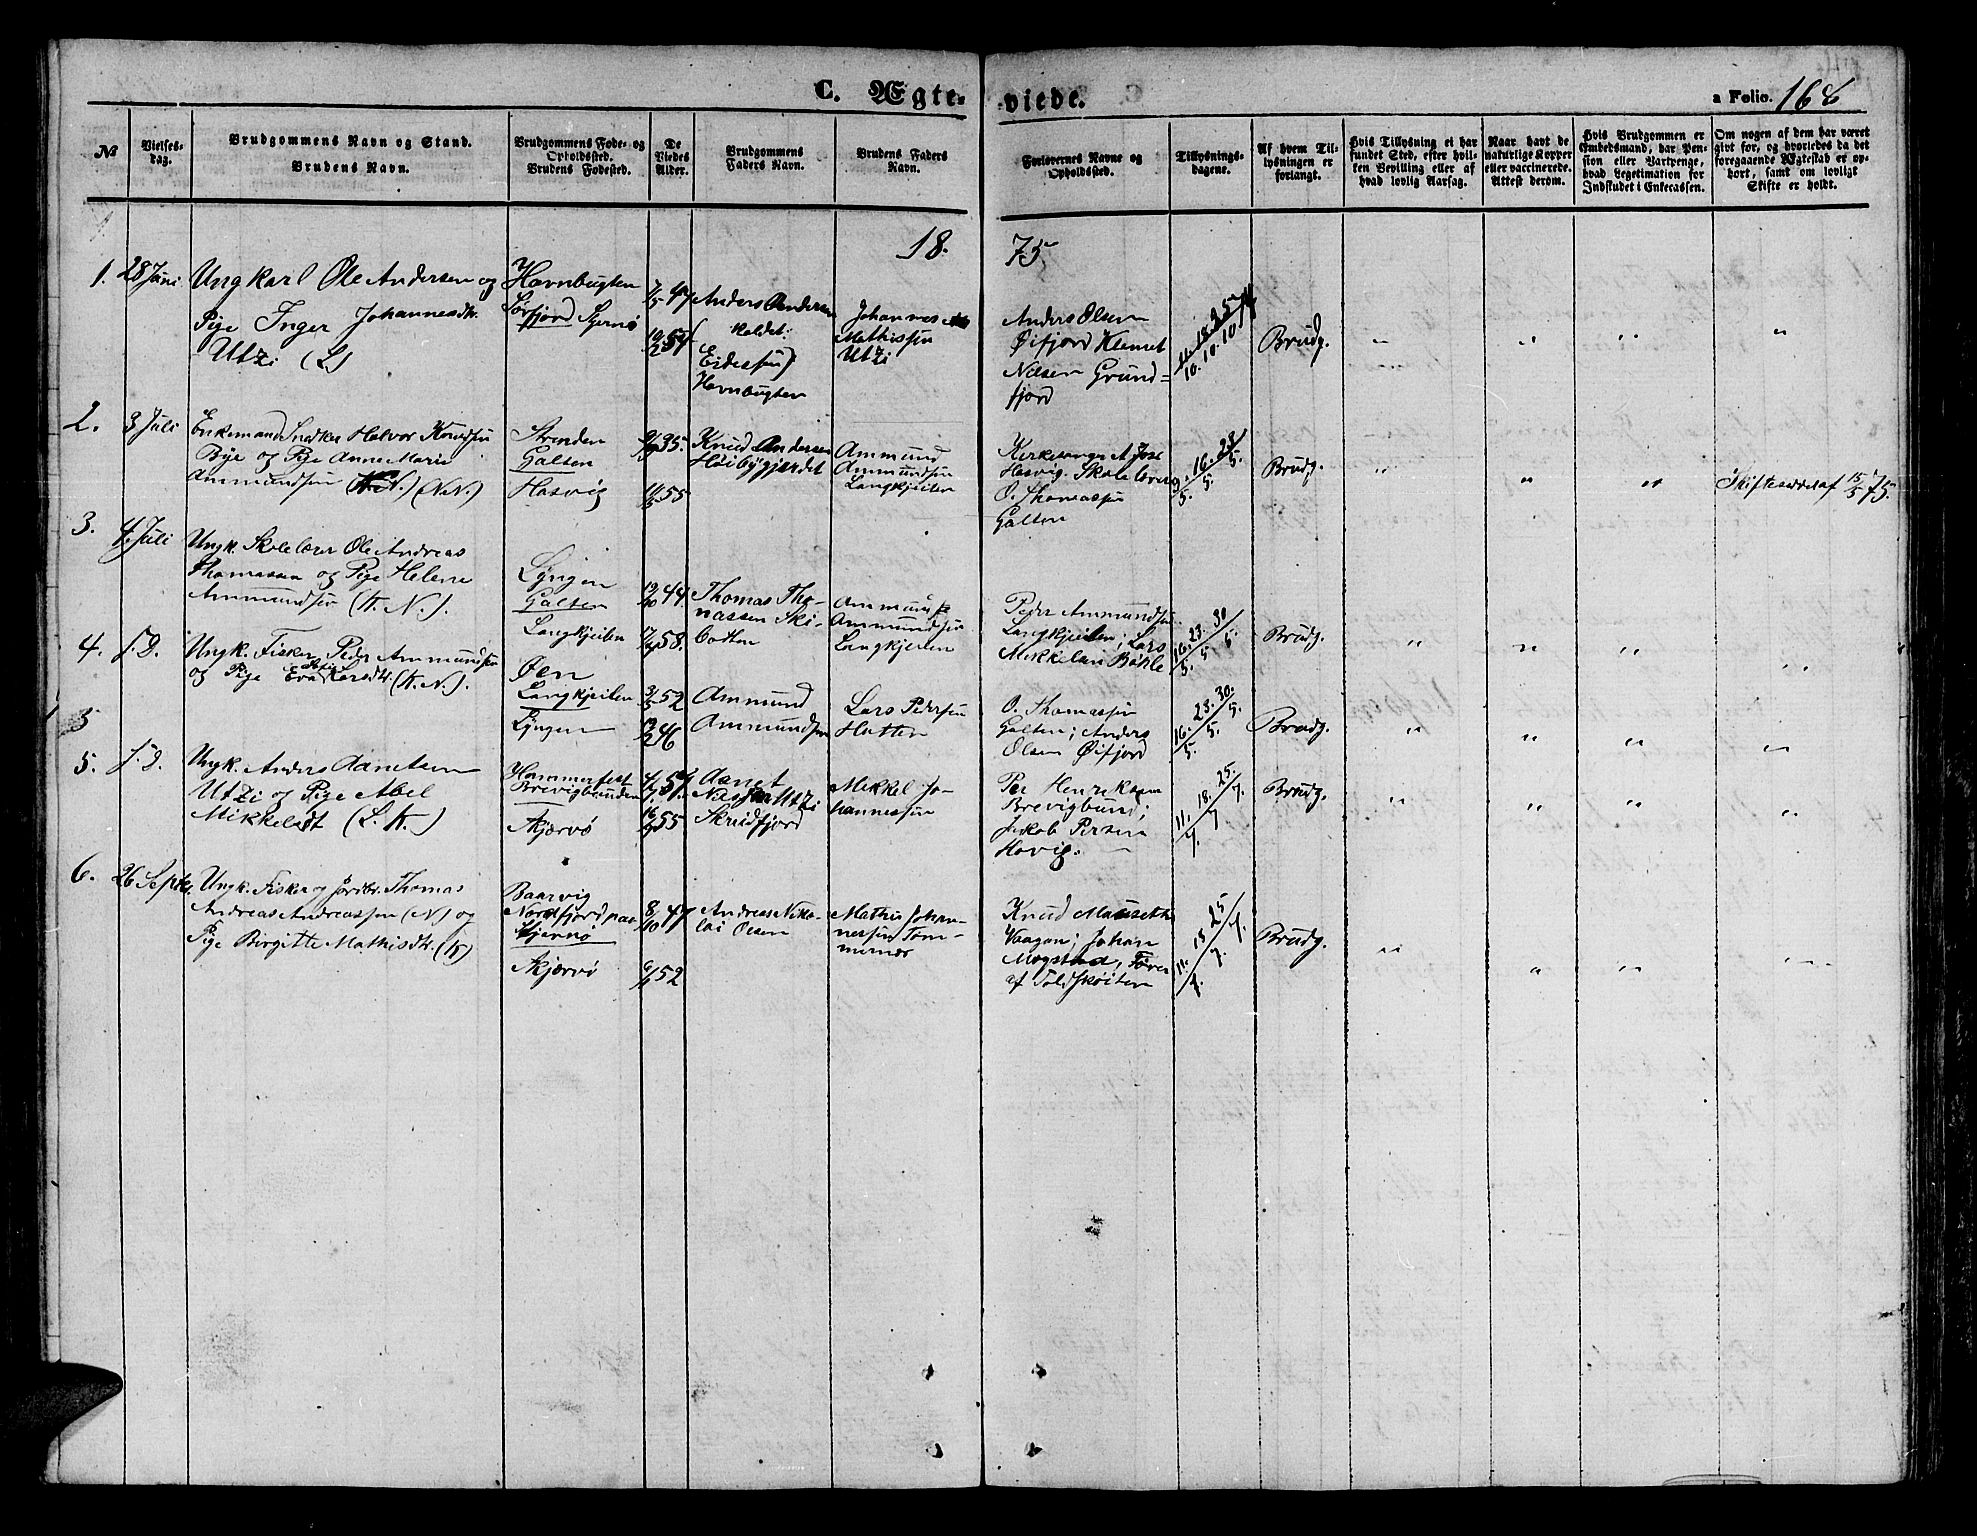 C. Ægte-
viede.
a Folio. 168
№
Vielses-
dag.
Brudgommens Navn og Stand.
Brudens Navn.
Brudgommens Føde- og
Opholdssted.
Brudens Fødested.
De
Viedes
Alder.
Brudgommens
Faders Navn.
Brudens Faders
Navn.
Forlovernes Navne og
Opholdssted.
Tillysnings-
dagene.
Af hvem Til-
lysningen er
forlangt.
Hvis Tillysning ei har
fundet Sted, efter hvil-
ken Bevilling eller af
hvad lovlig Aarsag.
Naar havt de
naturlige Kopper
eller vaccinerede.
Attest derom.
Hvis Brudgommen er
Embedsmand, har Pen-
sion eller Vartpenge,
hvad Legetimation for
Indskudet i Enkecassen.
Om nogen af dem har været
givt for, og hvorledes da det
foregaaende Ægteskab er op-
hørt, samt om lovligt
Skifte er holdt.
18.
75
1.
28 Juni
Ungkarl Ole Andersen og
Pige Inger Johannesdtr.
Utzi (L)
Havnbugten
Sørfjord Stjernø
7/5 47
10/2 54
Anders Andersen
(kaldet:
Eidessen)
Havnbugten
Johannes
Mathissen
Utzi
Anders Olsen
Øifjord Klemet
Nilsen Grund=
fjord
10. 10. 10
Brudg.
2.
3 Juli
Enkemand Snedker Halvor Knudsen
Bye og Pige Anne Marie
Ammundsen (N.N.)
Stranden
Galten
Hasvig
35.
55
Knud Andersen
Høibygjærdet
Ammund
Ammundsen
Langkjeilen
Kirkesanger A. Jose
Hasvig. Skolelærer
O. Thomassen
Galten
9. 16. 23
5. 5. 5.
Brudg.
Skifteseddel af 15/5 75.
3.
4 Juli
Ungk. Skolelærer Ole Andreas
Thomassen og Pige Helene
Ammundsen (K. N.).
Lyngen
Galten
Langkjeilen
44.
58.
Thomas Tho-
massen Ski-
botten
Ammund
Ammundsen
Langkjeilen
Peder Ammundsen
Langkjeilen; Lars
Mikkelsen Bøhle
16. 23. 30
5. 5 5.
Brudg.
4.
s. D.
Ungk. Fisker Peder Ammundsen
og Pige Eva Larsdtr. (K. N.).
Øen
Langkjeilen
Lyngen
52
46
Ammund
Ammundsen
Lars Pedersen
Hatten
O. Thomassen
Galten; Anders
Olsen Øifjord
16. 23. 30.
5. 5. 5.
Brudg.
5
5.
s. D.
Ungk. Anders Aanetsen
Utzi og Pige Abel
Mikkelsdt (L. K.)
Hammerfest
Brevigbunden
Skjærvø
54
55
Aanet
Nilsen Utzi
Skreidfjord
Mikkel Jo-
hannessen
Per Henriksen
Brevigbund;
Jakob Persen
Havig.
11. 18. 25.
7. 7 7.
Brudg.
6.
26 Septbr.
Ungk. Fisker og Jordbr. Thomas
Andreas Andreassen (N) og
Pige Birgitte Mathisdtr. (K)
Baarvig
Nordfjord paa
Stjernø
Skjærvø
8/10 47
52
Andreas Niko-
lai Olsen
Mathis Johan-
nessen Tom-
mernæs
Knud Mauseth
Vaagan; Johan
Mogstad, Fører
af Toldskøiten
11. 18 25
7. 7. 7.
Brudg.